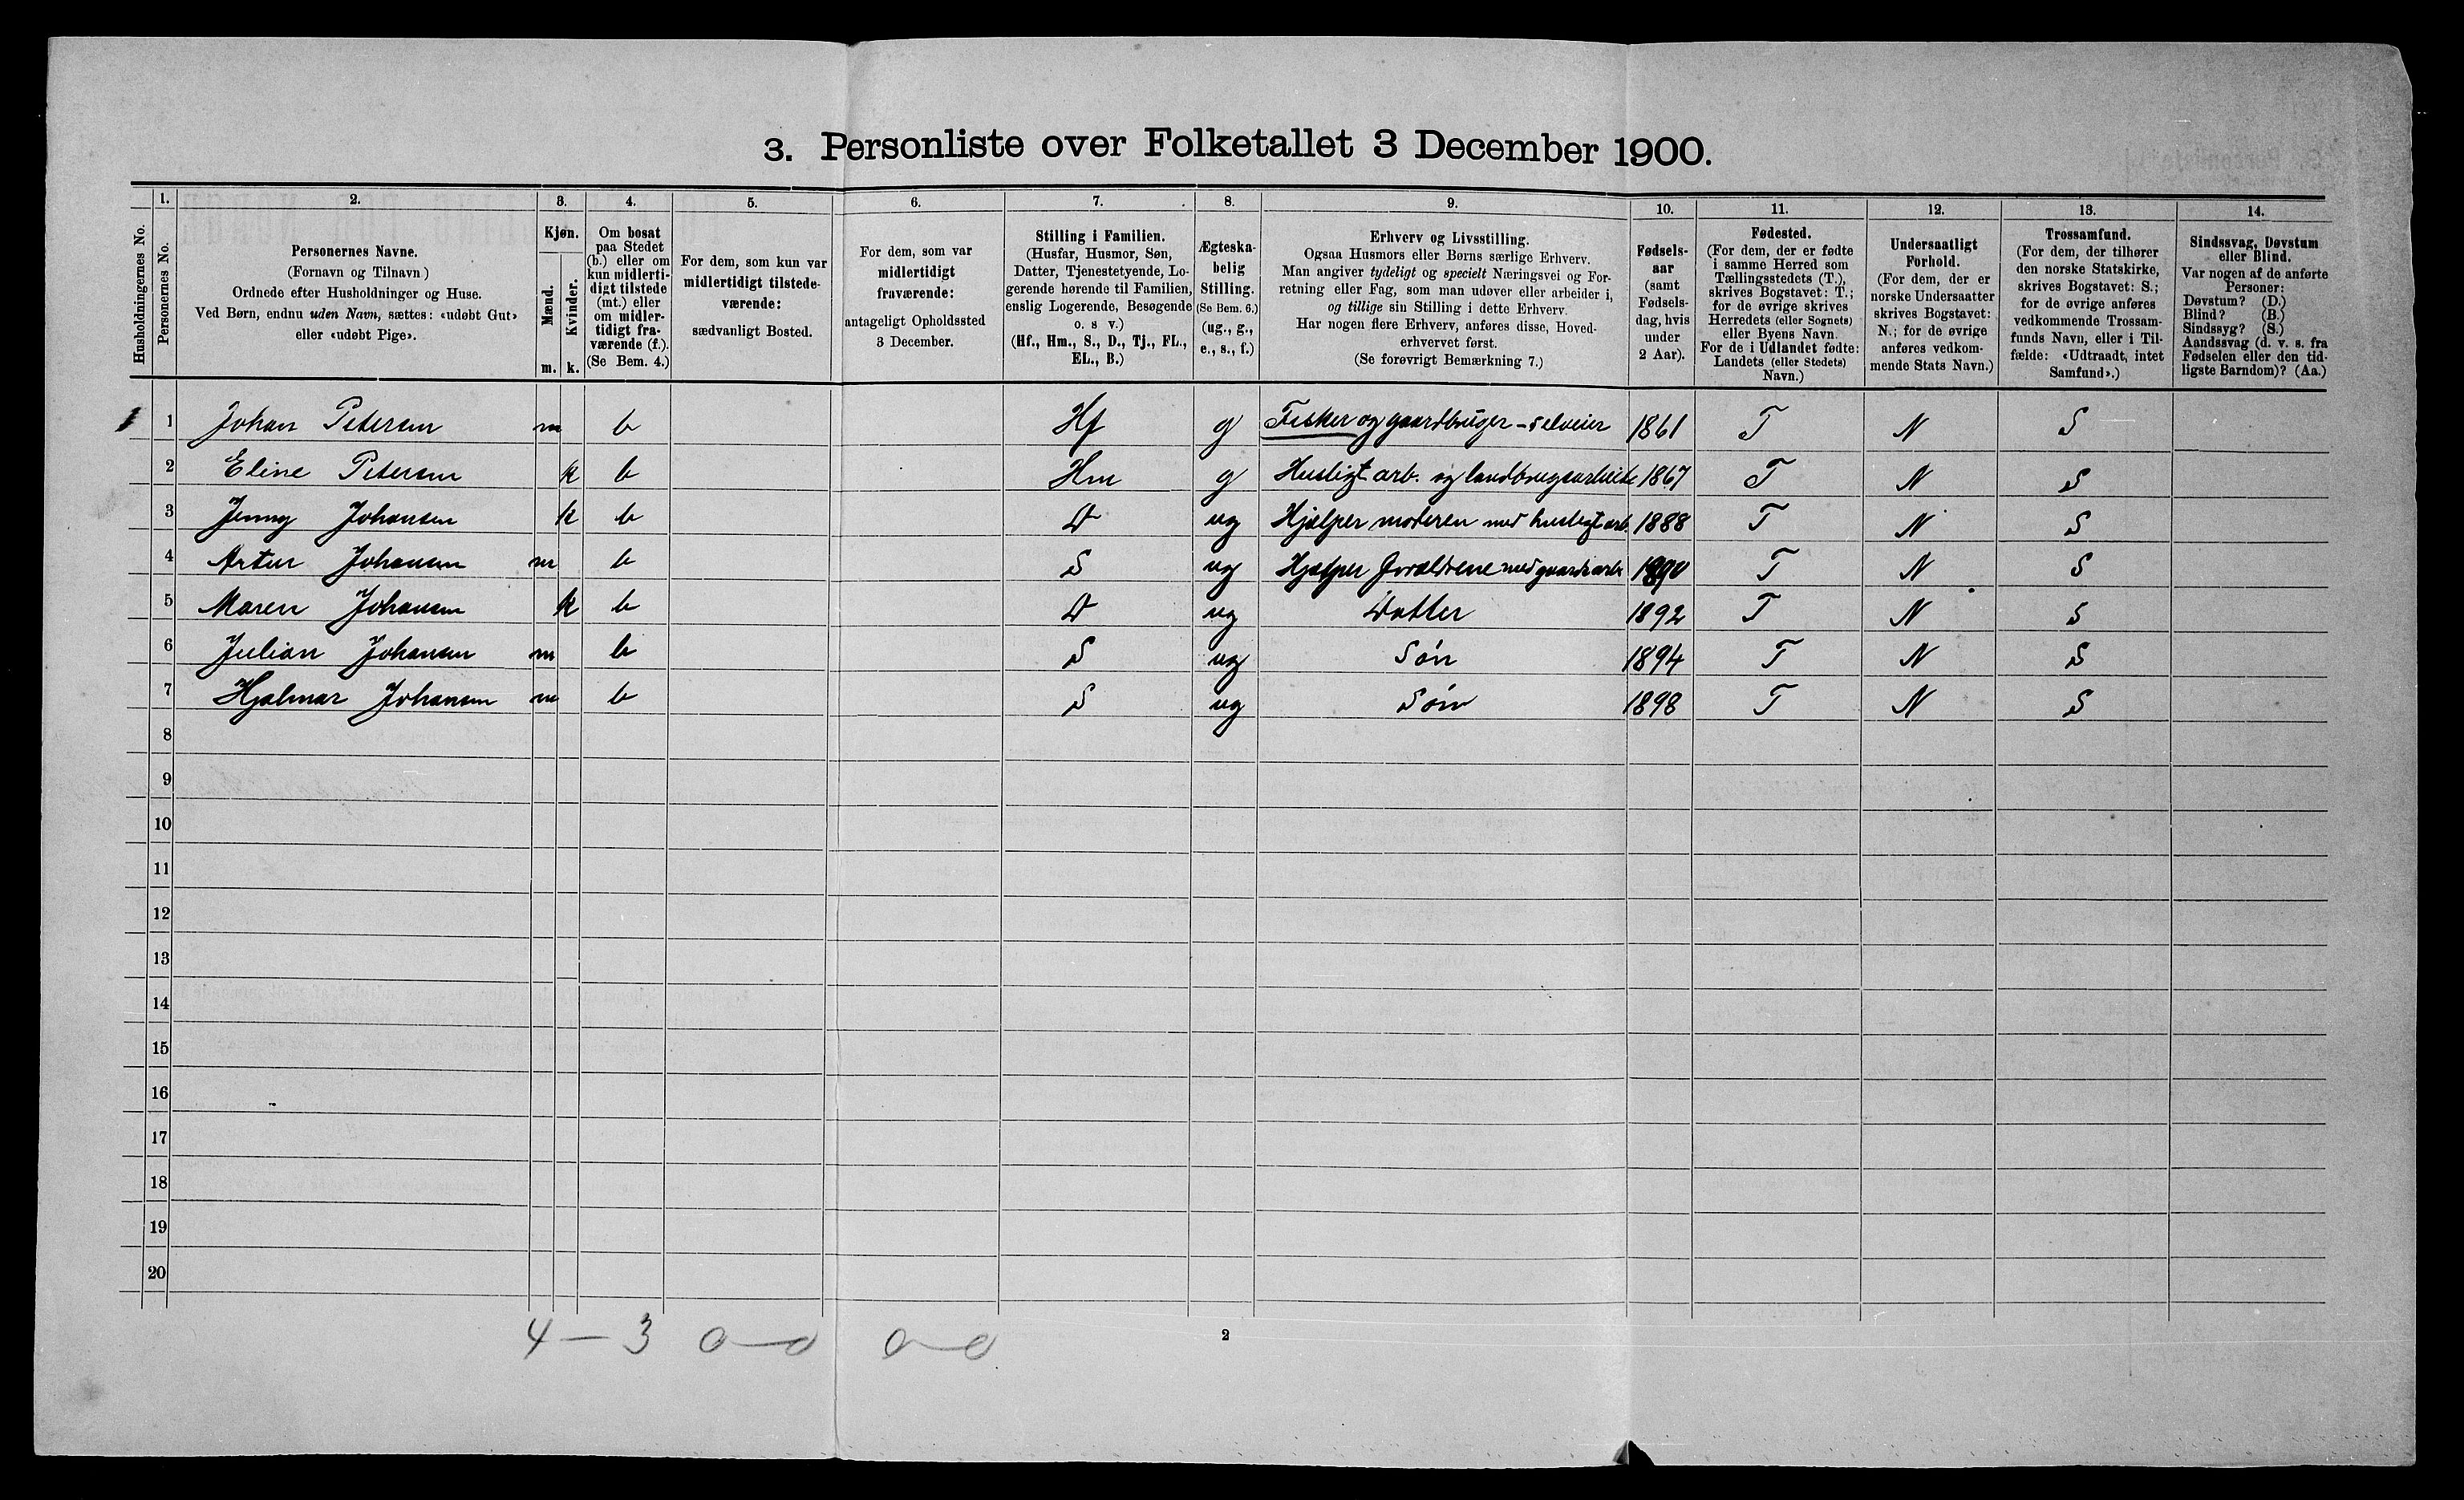 3. Personliste over Folketallet 3 December 1900.
Husholdningernes No.
1.
Personernes No.
2.
Personernes Navne.
(Fornavn og Tilnavn)
Ordnede efter Husholdninger og Huse.
Ved Børn, endnu uden Navn, sættes: «udøbt Gut»
eller «udøbt Pige».
3.
Kjøn.
Mænd.
Kvinder.
m. k.
4.
Om bosat
paa Stedet
(b.) eller om
kun midlerti-
digt tilstede
(mt.) eller
om midler-
tidigt fra-
værende (f.).
(Se Bem. 4.)
5.
For dem, som kun var
midlertidigt tilstede-
værende:
sædvanligt Bosted.
6.
For dem, som var
midlertidigt
fraværende:
antageligt Opholdssted
3 December.
7.
Stilling i Familien.
(Husfar, Husmor, Søn,
Datter, Tjenestetyende, Lo-
gerende hørende til Familien,
enslig Logerende, Besøgende
o. s v.)
(Hf., Hm., S., D., Tj., FL.,
EL., B.)
8.
Ægteska-
belig
Stilling.
(Se Bem. 6.)
(ug., g.,
e., s., f.)
9.
Erhverv og Livsstilling.
Ogsaa Husmors eller Børns særlige Erhverv.
Man angiver tydeligt og specielt Næringsvei og For-
retning eller Fag, som man udøver eller arbeider i,
og tillige sin Stilling i dette Erhverv.
Har nogen flere Erhverv, anføres disse, Hoved-
erhvervet først.
(Se forøvrigt Bemærkning 7.)
10.
Fødsels-
aar
(samt
Fødsels-
dag, hvis
under
2 Aar).
11.
Fødested.
(For dem, der er fødte
i samme Herred som
Tællingsstedets (T.),
skrives Bogstavet: T.;
for de øvrige skrives
Herredets (eller Sognets)
eller Byens Navn.
For de i Udlandet fødte:
Landets (eller Stedets)
Navn.)
12.
Undersaatligt
Forhold.
(For dem, der er
norske Undersaatter
skrives Bogstavet:
N.; for de øvrige
anføres vedkom-
mende Stats Navn.)
13.
Trossamfund.
(For dem, der tilhører
den norske Statskirke,
skrives Bogstavet: S.;
for de øvrige anføres
vedkommende Trossam-
funds Navn, eller i Til-
fælde: «Udtraadt, intet
Samfund».)
14.
Sindssvag, Døvstum
eller Blind.
Var nogen af de anførte
Personer:
Døvstum? (D.)
Blind? (B.)
Sindssyg? (S.)
Aandssvag (d. v. s. fra
Fødselen eller den tid-
ligste Barndom)? (Aa.)
1 1 Johan Petersen m b Hf g Fisker og gaardbruger - selveier 1861 T N S
2 Eline Petersen k b Hm g Husligt arb. og landbrugsarbeide 1867 T N S
3 Jenny Johansen k b D ug Hjælper moderen med husligt arb. 1888 T N S
4 Artur Johansen m b S ug Hjælper forældrene med gaardsarb 1890 T N S
5 Maren Johansen k b D ug Datter 1892 T N S
6 Julian Johansen m b S ug Søn 1894 T N S
7 Hjalmar Johansen m b S ug Søn 1898 T N S
8
9
10
11
12
13
14
15
16
17
18
19
20
4 — 3 0—0 0—0
2